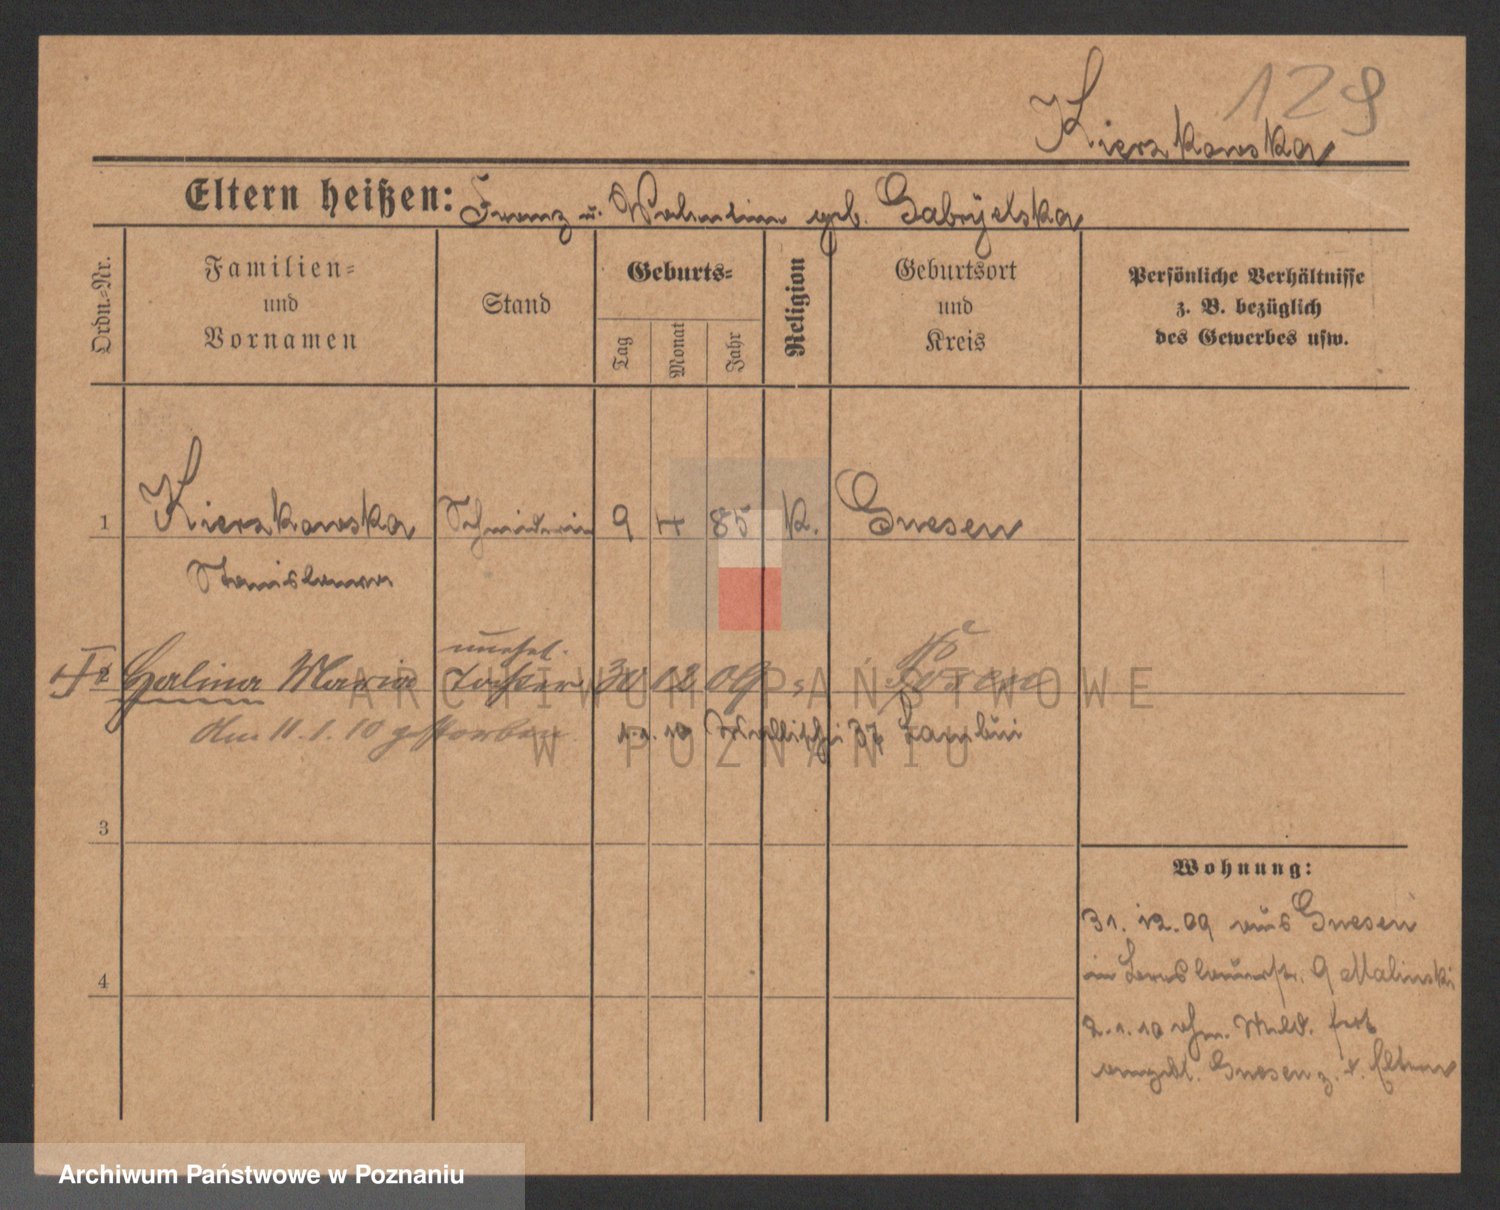 129
Kierzkowska
Eltern heißen: Franz u. Valentine geb. Gabryelska
Ordn.-Nr.
Familien-
und
Vornamen
Stand
Geburts-
Tag
Monat
Jahr
Religion
Geburtsort
und
Kreis
Persönliche Verhältnisse
z. B. bezüglich
des Gewerbes usw.
1 Kierzkowska Schneiderin 9 4 85 K. Gnesen
Stanislawa
unehel.
2 Halina Maria Tochter 30 12 09 Posen
den 11.1.10 gestorben 1.1.10 Wallischei 37
3
4
Wohnung:
31. 12. 09 aus Gnesen
in 9 Malinski
2.1.10 ohne Meld. fort
angebl. Gnesen z. d. Eltern
ARCHIWUM PAŃSTWOWE
W POZNANIU
Archiwum Państwowe w Poznaniu